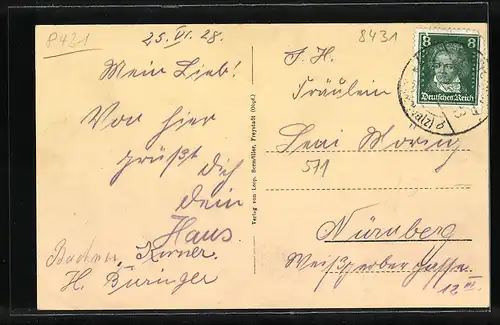 8431
25. VI. 28.
Mein Lieb!
Von hier
grüßt
Dich
Dein
Hans.
Korner.
H. Büringer
Verlag von Leop. Bernstiller, Freystadt (Obpf.)
8431
8 8
Deutsches Reich
S. H.
Fräulein
Leni Moring
571
Nürnberg
Weißgerbergasse
12 III.